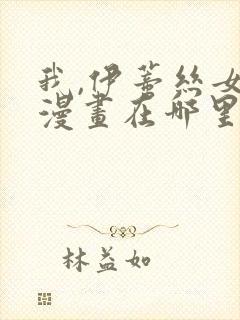 我,伊蒂絲女
漫畫在哪里
林益如